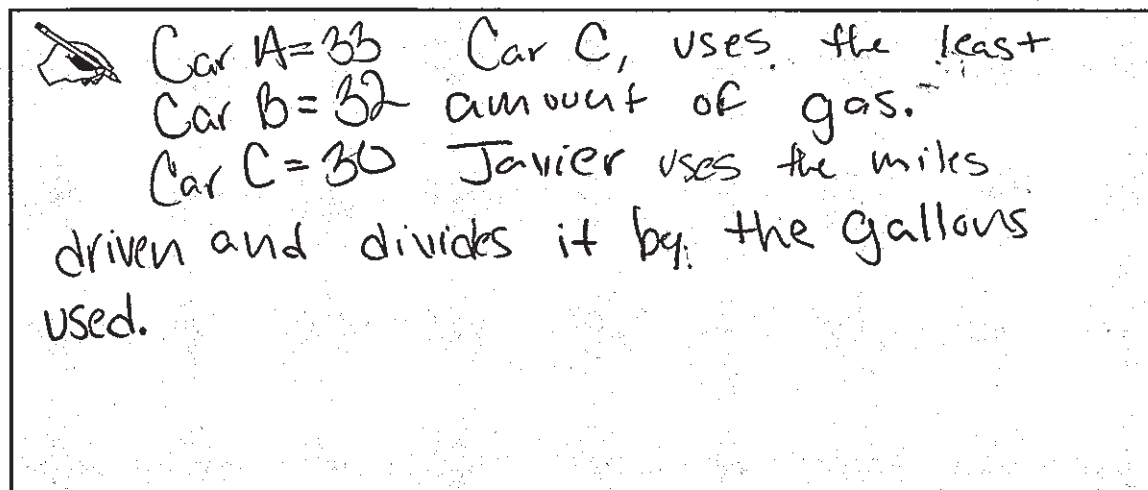 Car A=33 Car C, uses the least
Car B=32 amount of gas.
Car C=30 Javier uses the miles
driven and divides it by the gallons
used.